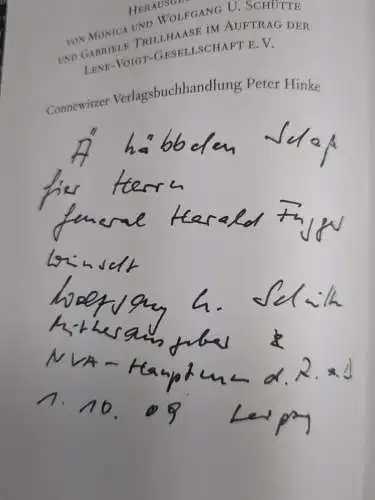 HERAUSGE
VON MONICA UND WOLFGANG U. SCHÜTTE
UND GABRIELE TRILLHAASE IM AUFTRAG DER
LENE-VOIGT-GESELLSCHAFT E. V.
Connewitzer Verlagsbuchhandlung Peter Hinke
Ä häbbchen
fier Herrn
General Harald Fugger
wünscht
Wolfgang U. Schütte
Mitherausgeber &
NVA-Hauptmann d. R. a D
1. 10. 09 Leipzig